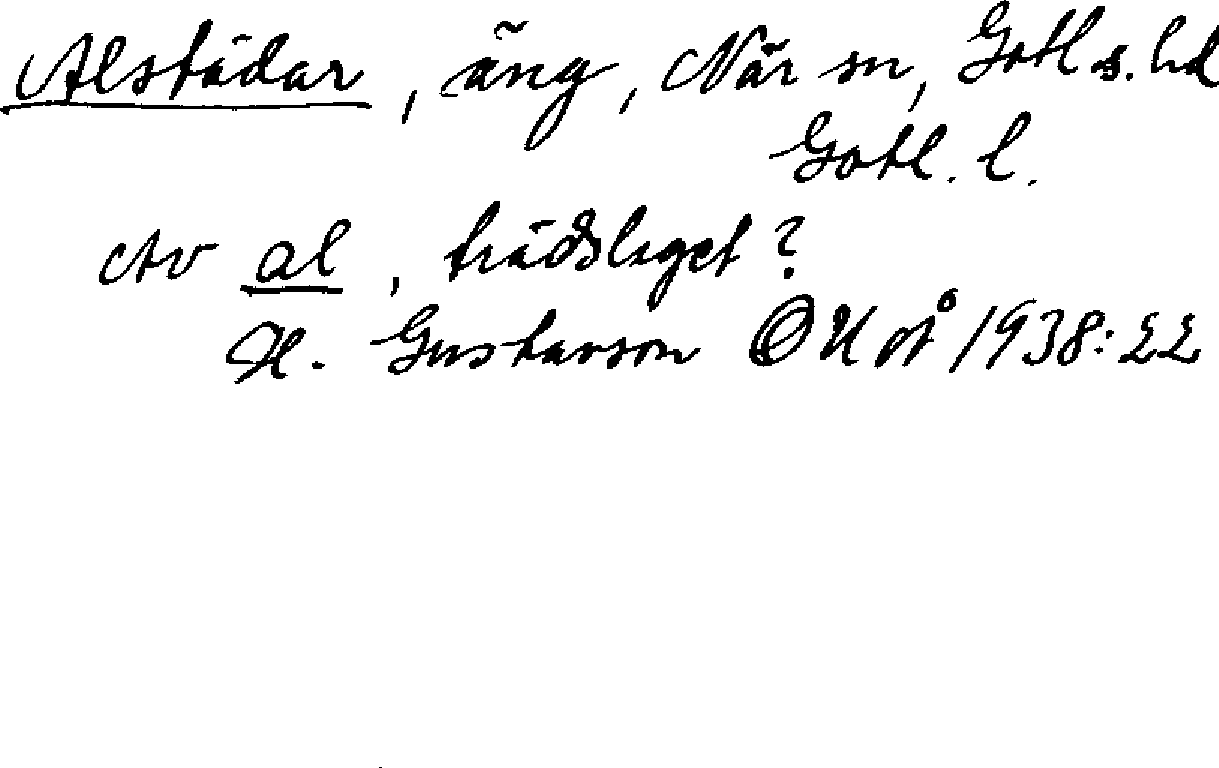 Alstädar, äng, När sn, Gotl s. hd
Gotl. l.
Av al, trädslaget?
H. Gustavson OUÅ 1938: 22